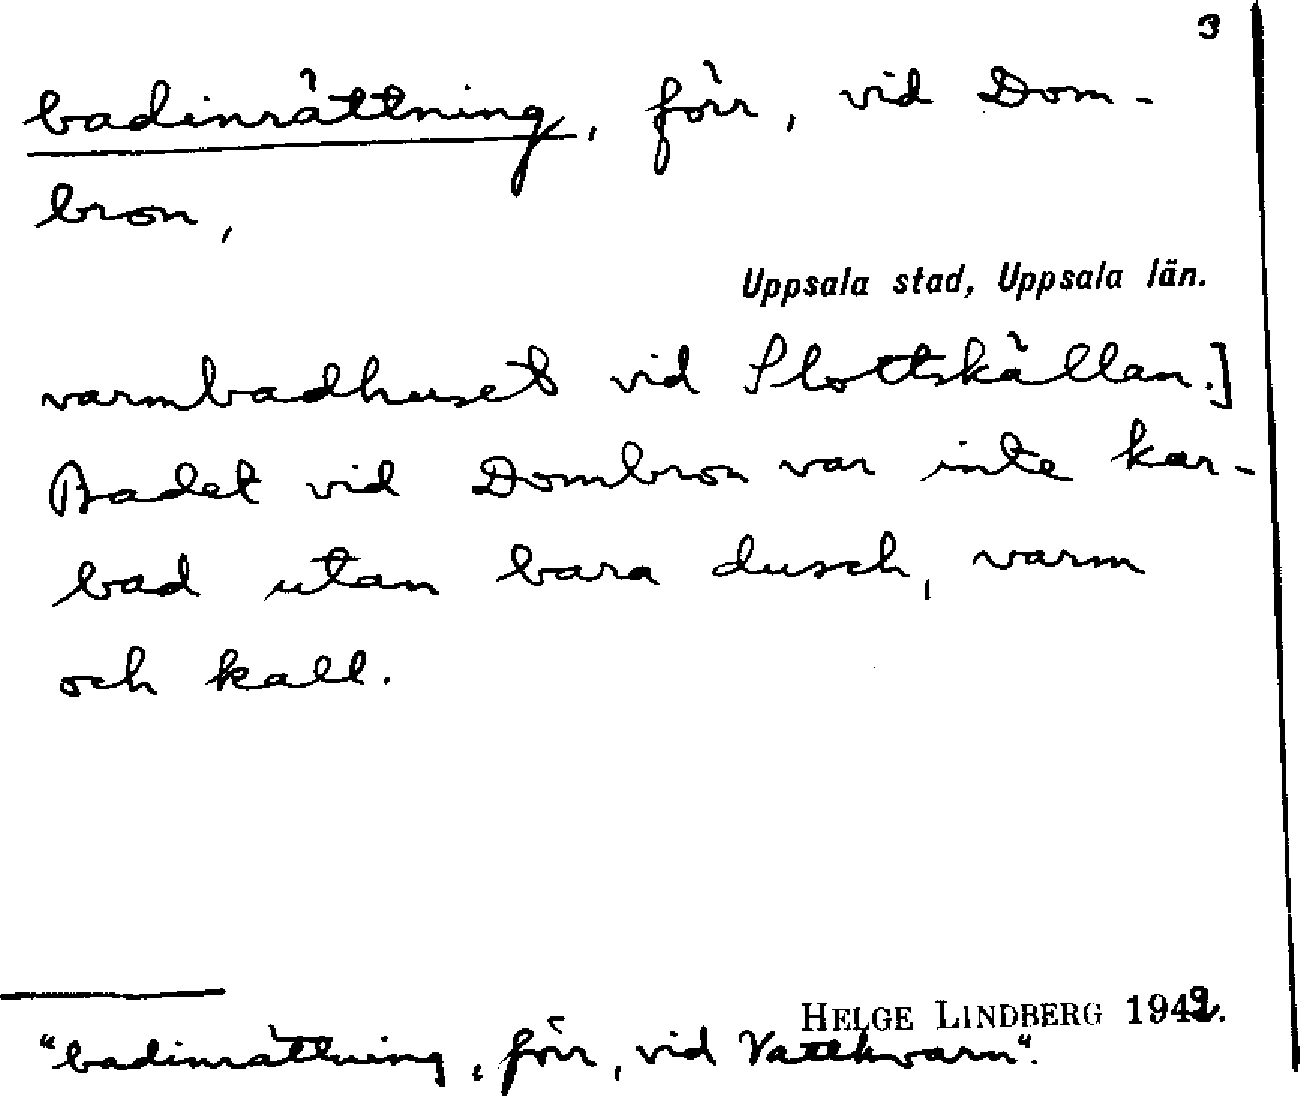 3
badinrättning, förr, vid Dom-
bron,
Uppsala stad, Uppsala län.
varmbadhuset vid Slottskällan.]
Badet vid Dombron var inte kar-
bad utan bara dusch, varm
och kall.
HELGE LINDBERG 1942.
"badinrättning, förr, vid Vattkvarn".